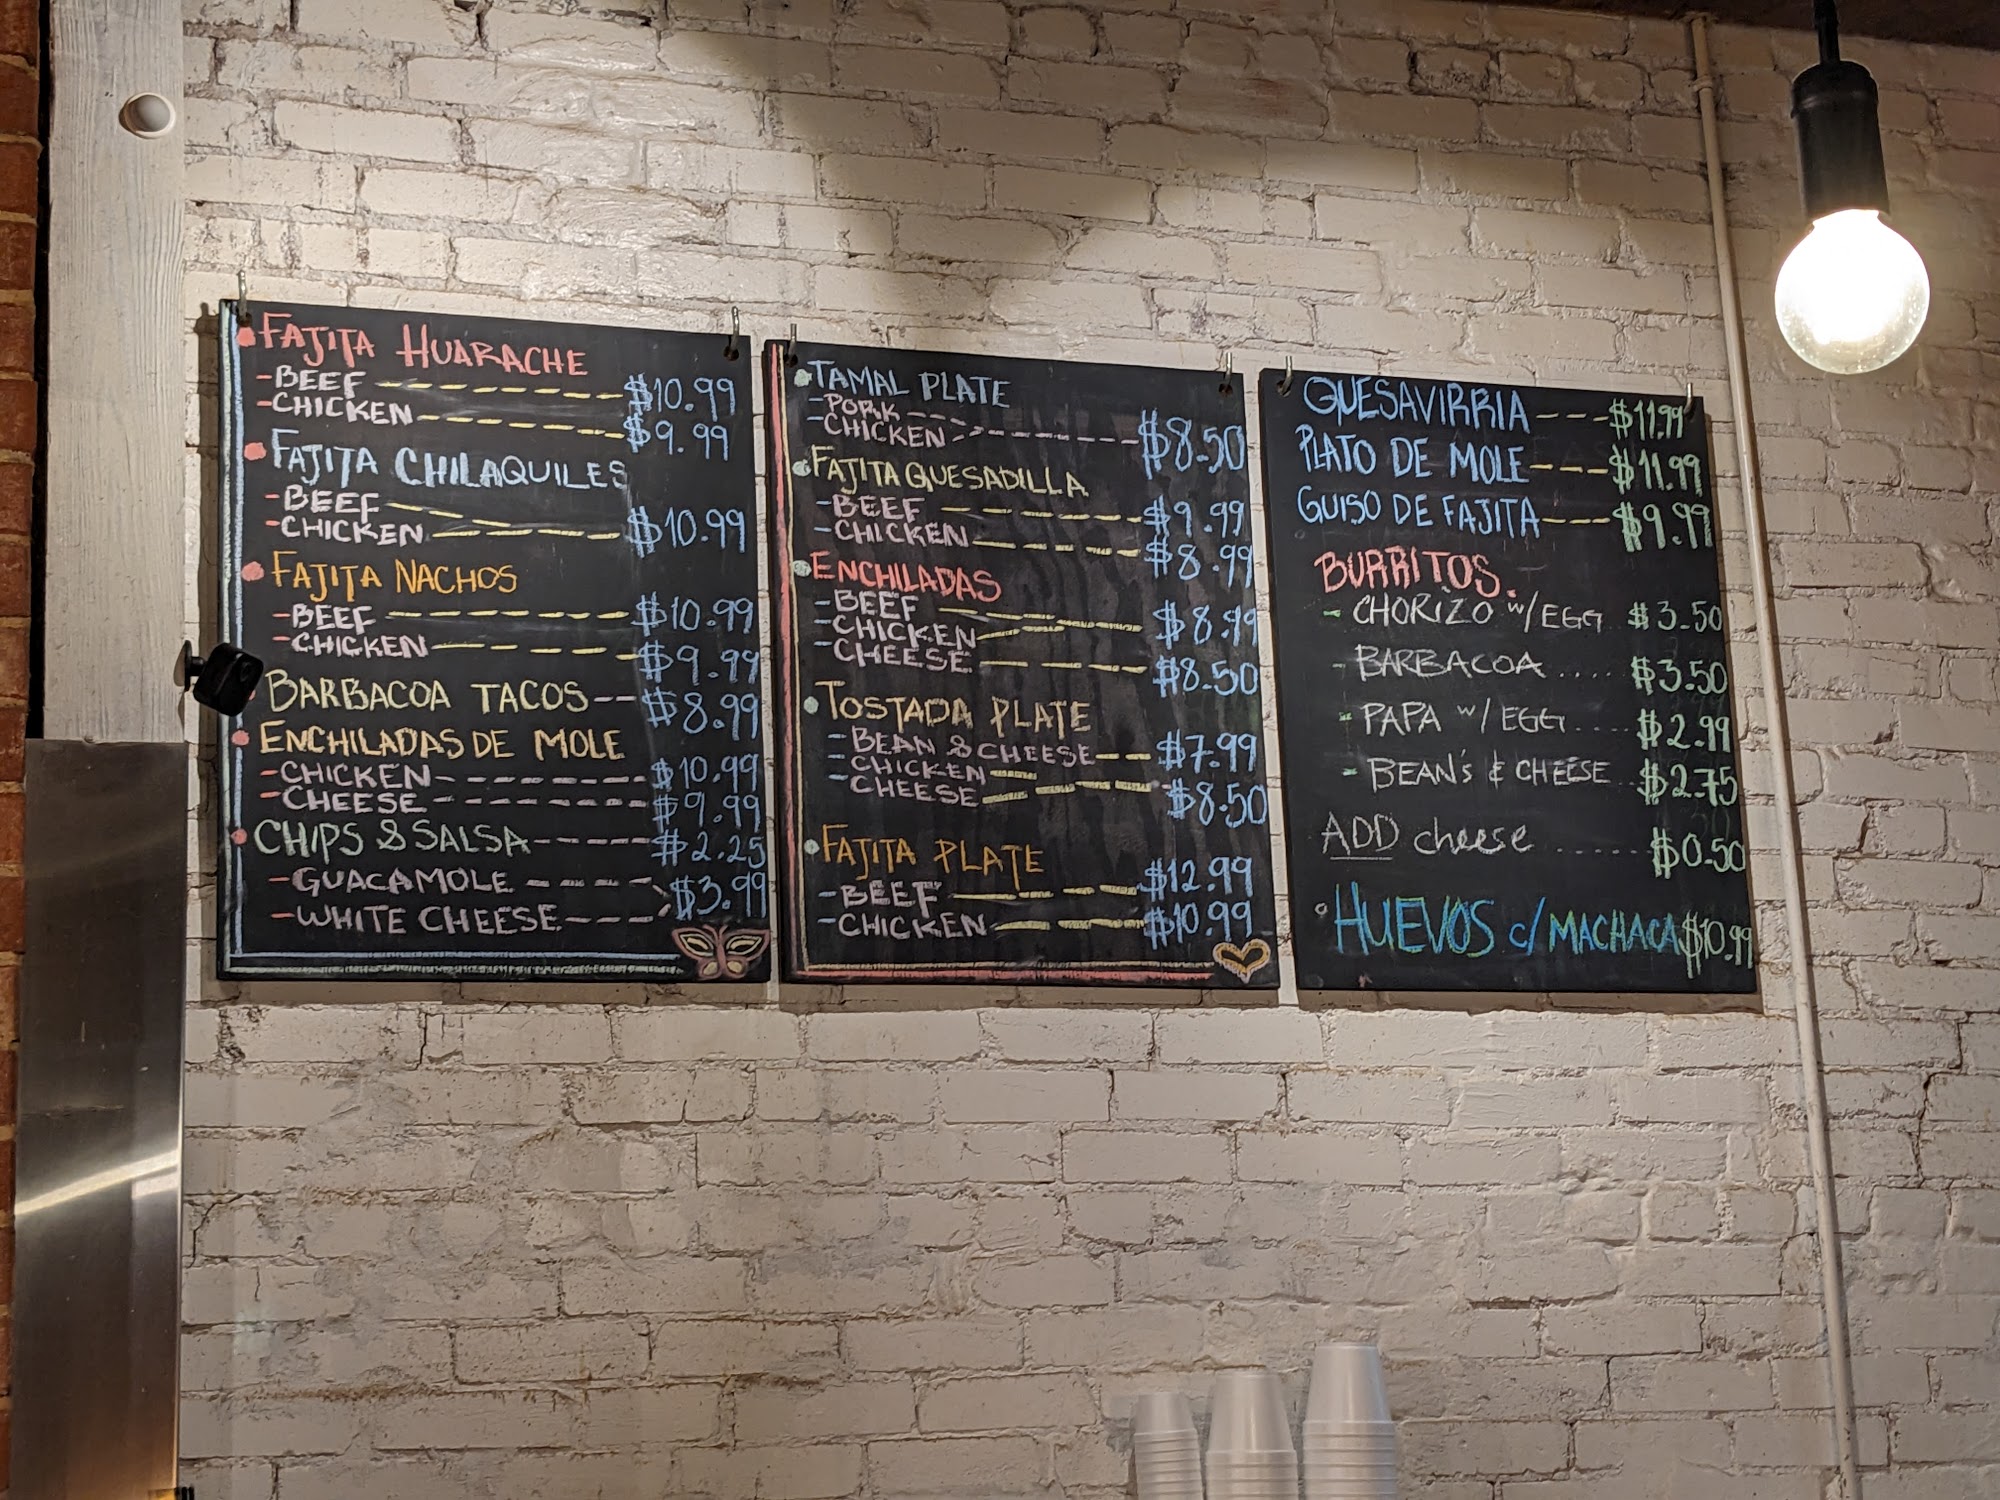 FAJITA HUARACHE
-BEEF $10.99
-CHICKEN $9.99
FAJITA CHILAQUILES
-BEEF
-CHICKEN $10.99
FAJITA NACHOS
-BEEF $10.99
-CHICKEN $9.99
BARBACOA TACOS $8.99
ENCHILADAS DE MOLE
-CHICKEN $10.99
-CHEESE $9.99
CHIPS & SALSA $2.25
-GUACAMOLE $3.99
-WHITE CHEESE
TAMAL PLATE
-PORK
-CHICKEN $8.50
FAJITA QUESADILLA
-BEEF $9.99
-CHICKEN $8.99
ENCHILADAS
-BEEF $8.99
-CHICKEN
-CHEESE $8.50
TOSTADA PLATE
-BEAN & CHEESE $7.99
-CHICKEN
-CHEESE $8.50
FAJITA PLATE
-BEEF $12.99
-CHICKEN $10.99
QUESAVIRRIA---$11.99
PLATO DE MOLE---$11.99
GUISO DE FAJITA---$9.99
BURRITOS.
-CHORIZO w/EGG $3.50
-BARBACOA....$3.50
-PAPA w/ EGG....$2.99
-BEAN's & CHEESE $2.75
ADD cheese ......$0.50
HUEVOS c/MACHACA $10.99